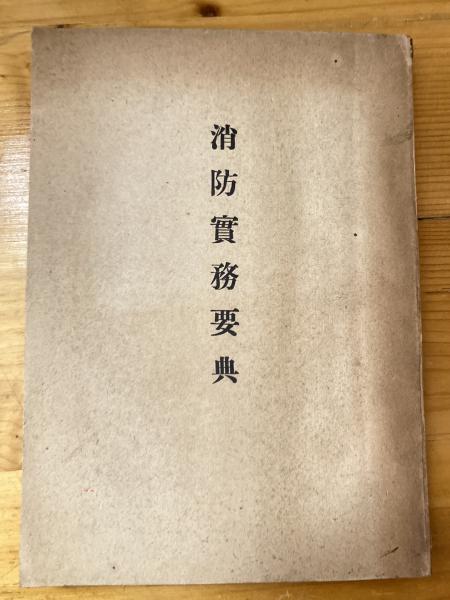 消防實務要典